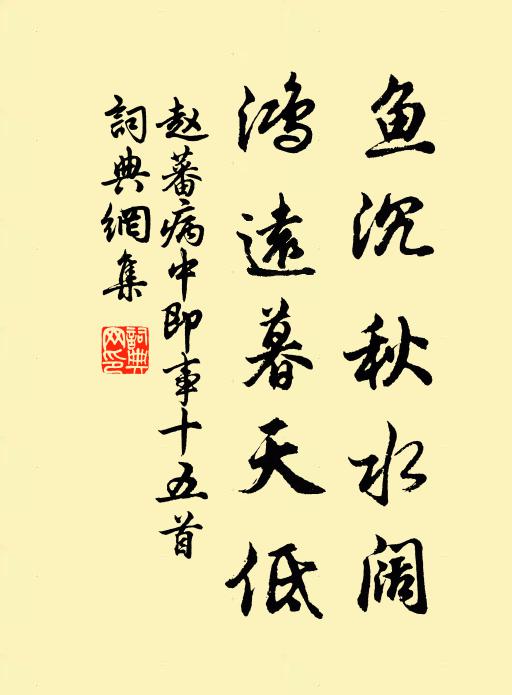 鱼沉秋水阔
鸿远暮天低
赵蕃病中即事十五首
词典網集
詞典网印